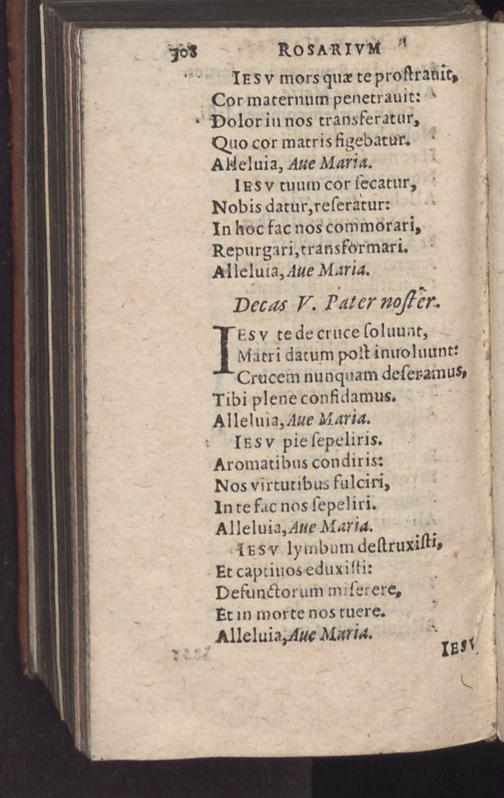 308 ROSARIVM
IESV mors quæ te prostrauit,
Cor maternum penetrauit:
Dolor in nos transferatur,
Quo cor matris figebatur.
Alleluia, Aue Maria.
IESV tuum cor secatur,
Nobis datur, reseratur:
In hoc fac nos commorari,
Repurgari, transformari.
Alleluia, Aue Maria.
Decas V. Pater noster.
IESV te de cruce soluunt,
Matri datum post inuoluunt:
Crucem nunquam deseramus,
Tibi plene confidamus.
Alleluia, Aue Maria.
IESV pie sepeliris.
Aromatibus condiris:
Nos virtutibus fulciri,
In te fac nos sepeliri.
Alleluia, Aue Maria.
IESV lymbum destruxisti,
Et captiuos eduxisti:
Defunctorum miserere,
Et in morte nos tuere.
Alleluia, Aue Maria.
IESV